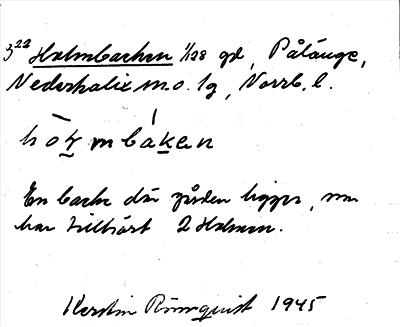 3²² Holmbacken 1/128 gd, Pålänge,
Nederkalix m.o. lg, Norrb. l.
hóḷmbàḵen
En backe där gården ligger, som
har tillhört 2 Holmen.
Kerstin Rönnquist 1945